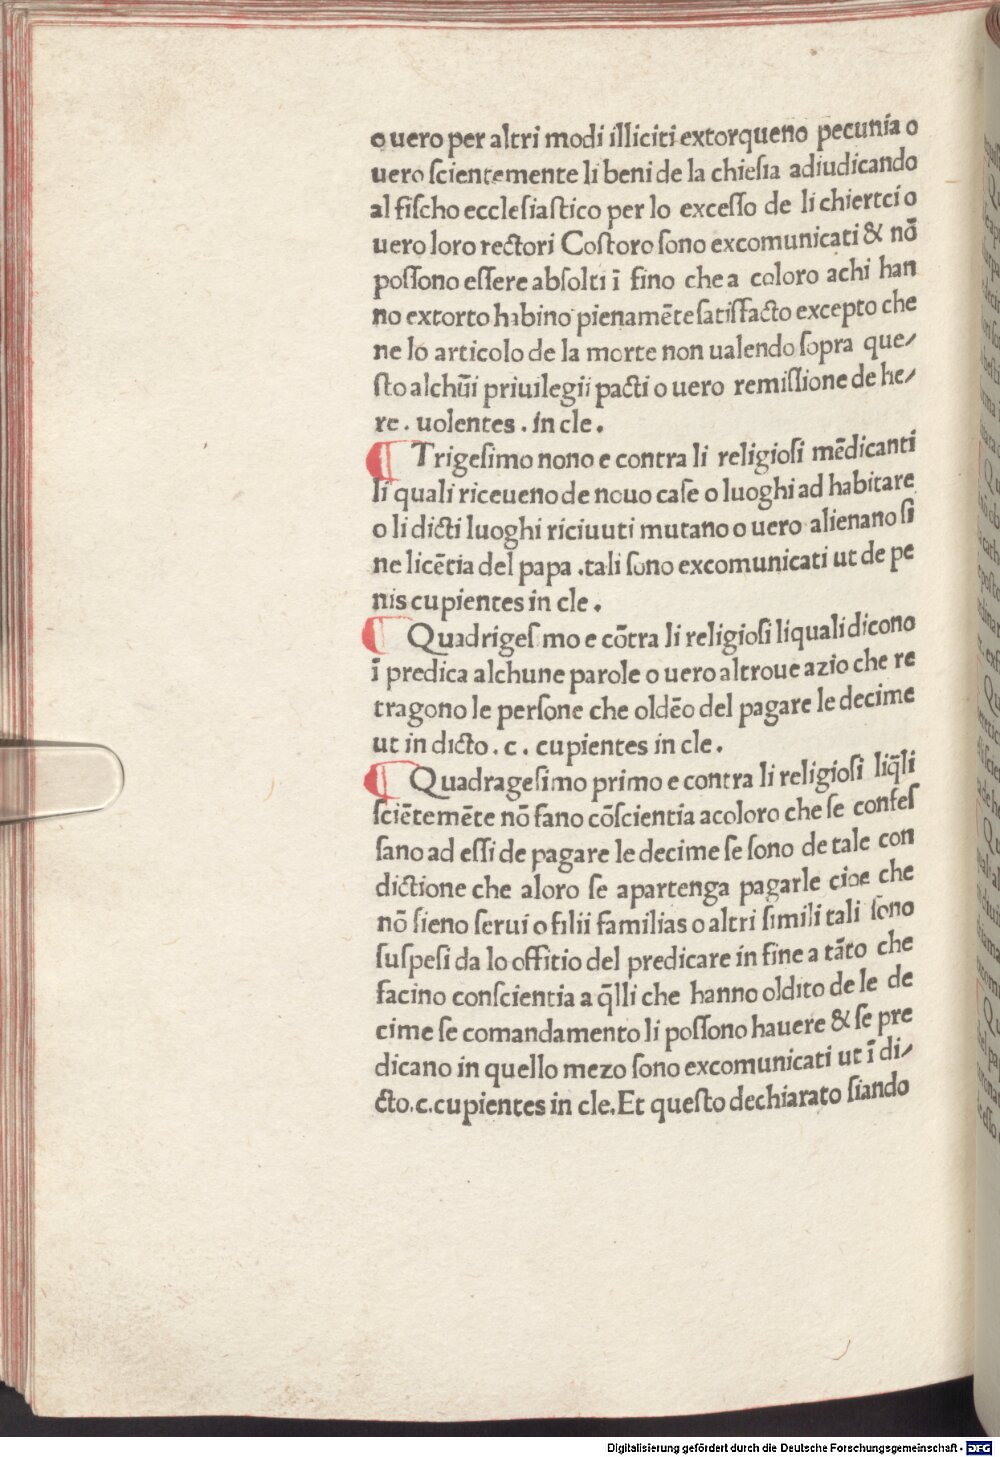 o uero per altri modi illiciti extorqueno pecunia o
uero ſcientemente li beni de la chieſia adiudicando
al fiſcho eccleſiaſtico per lo exceſſo de li chierici o
uero loro rectori Coſtoro ſono excomunicati & nō
poſſono eſſere abſolti ī fino che a coloro achi han
no extorto habino pienamēte ſatiſfacto excepto che
ne lo articolo de la morte non ualendo ſopra que⸗
ſto alchūi priuilegii pacti o uero remiſſione de he⸗
re . uolentes . in cle .
¶ Trigeſimo nono e contra li religioſi mēdicanti
li quali riceueno de nouo caſe o luoghi ad habitare
o li dicti luoghi riciuuti mutano o uero alienano ſi
ne licētia del papa .tali ſono excomunicati ut de pe
nis cupientes in cle .
¶ Quadrigeſimo e cōtra li religioſi liquali dicono
ī predica alchune parole o uero altroue azio che re
tragono le perſone che oldēo del pagare le decime
ut in dicto . c . cupientes in cle .
¶ Quadrageſimo primo e contra li religioſi liq̄li
ſciētemēte nō fano cōſcientia acoloro che ſe confeſ
ſano ad eſſi de pagare le decime ſe ſono de tale con
dictione che aloro ſe apartenga pagarle cioe che
nō ſieno ſerui o filii familias o altri ſimili tali ſono
ſuſpeſi da lo offitio del predicare in fine a tāto che
facino conſcientia a q̄lli che hanno oldito de le de
cime ſe comandamento li poſſono hauere & ſe pre
dicano in quello mezo ſono excomunicati ut ī di⸗
cto.c.cupientes in cle.Et queſto dechiarato ſiando
Digitalisierung gefördert durch die Deutsche Forschungsgemeinschaft - DFG